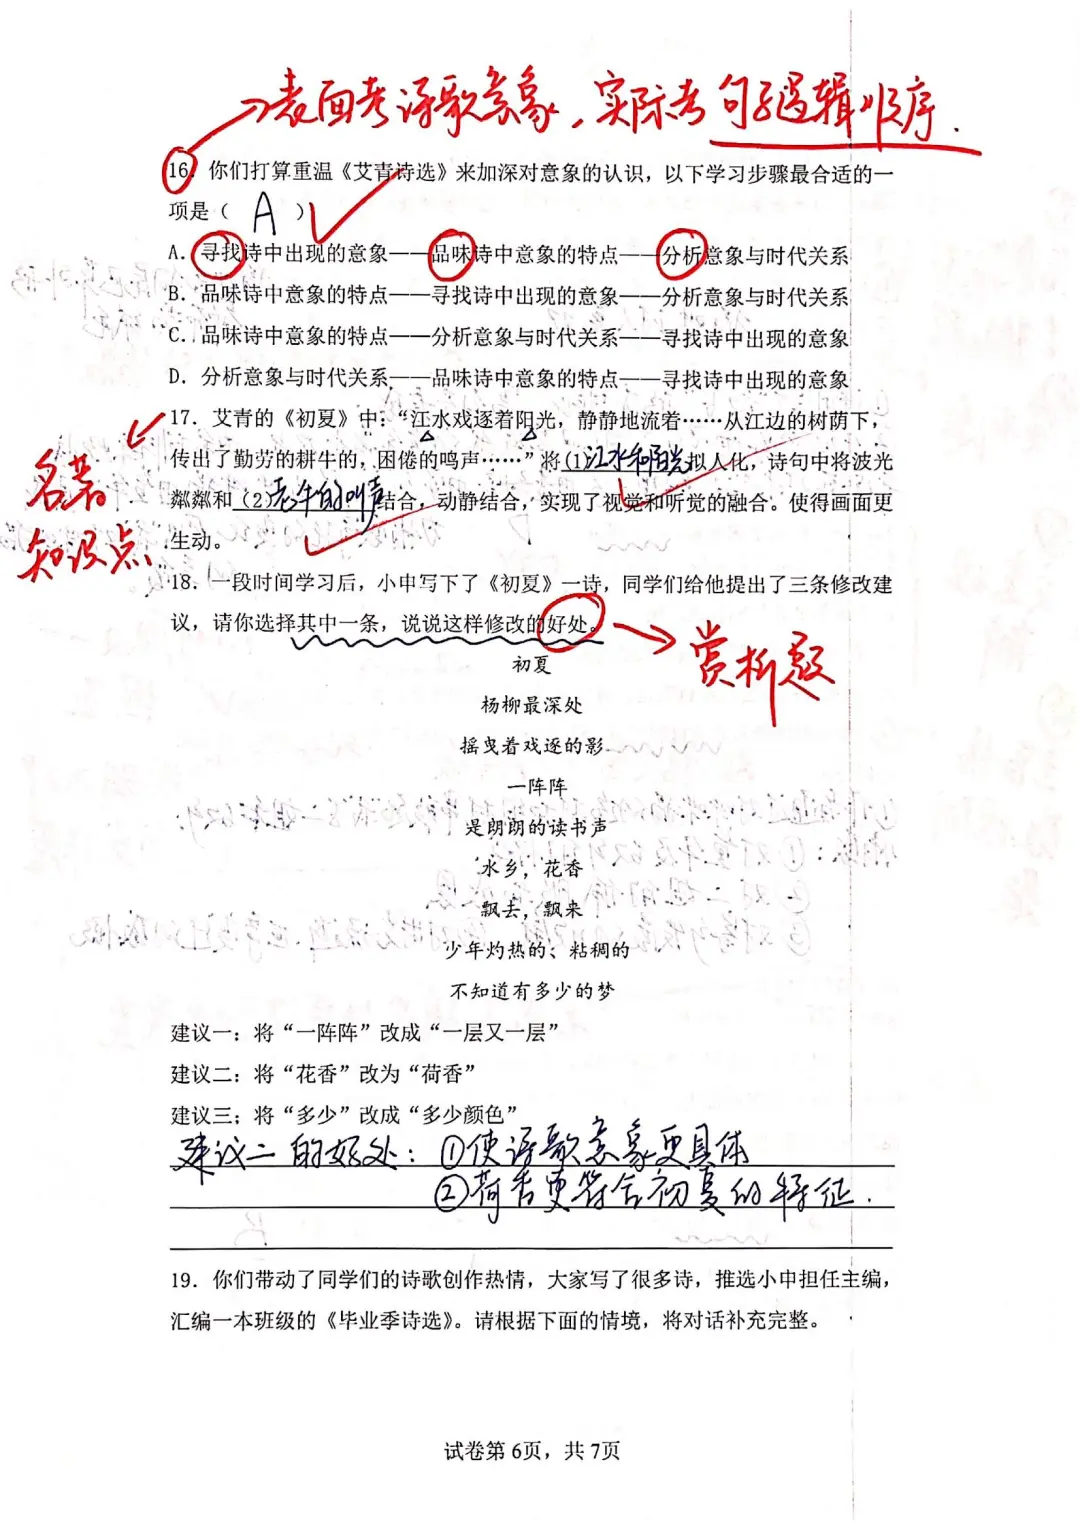 →表面考诗歌意象，实际考句子逻辑顺序.
16. 你们打算重温《艾青诗选》来加深对意象的认识，以下学习步骤最合适的一
项是（ A ）
A. 寻找诗中出现的意象——品味诗中意象的特点——分析意象与时代关系
B. 品味诗中意象的特点——寻找诗中出现的意象——分析意象与时代关系
C. 品味诗中意象的特点——分析意象与时代关系——寻找诗中出现的意象
D. 分析意象与时代关系——品味诗中意象的特点——寻找诗中出现的意象
名著
知识点
17. 艾青的《初夏》中：“江水戏逐着阳光，静静地流着……从江边的树荫下，
传出了勤劳的耕牛的，困倦的鸣声……”将(1)江水和阳光拟人化，诗句中将波光
粼粼和 (2)老牛的叫声结合，动静结合，实现了视觉和听觉的融合。使得画面更
生动。
18. 一段时间学习后，小申写下了《初夏》一诗，同学们给他提出了三条修改建
议，请你选择其中一条，说说这样修改的好处。
→赏析题
初夏
杨柳最深处
摇曳着戏逐的影
一阵阵
是朗朗的读书声
水乡，花香
飘去，飘来
少年灼热的、粘稠的
不知道有多少的梦
建议一：将“一阵阵”改成“一层又一层”
建议二：将“花香”改为“荷香”
建议三：将“多少”改成“多少颜色”
建议二的好处：①使诗歌意象更具体
②荷香更符合初夏的特征.
19. 你们带动了同学们的诗歌创作热情，大家写了很多诗，推选小申担任主编，
汇编一本班级的《毕业季诗选》。请根据下面的情境，将对话补充完整。
试卷第6页，共7页